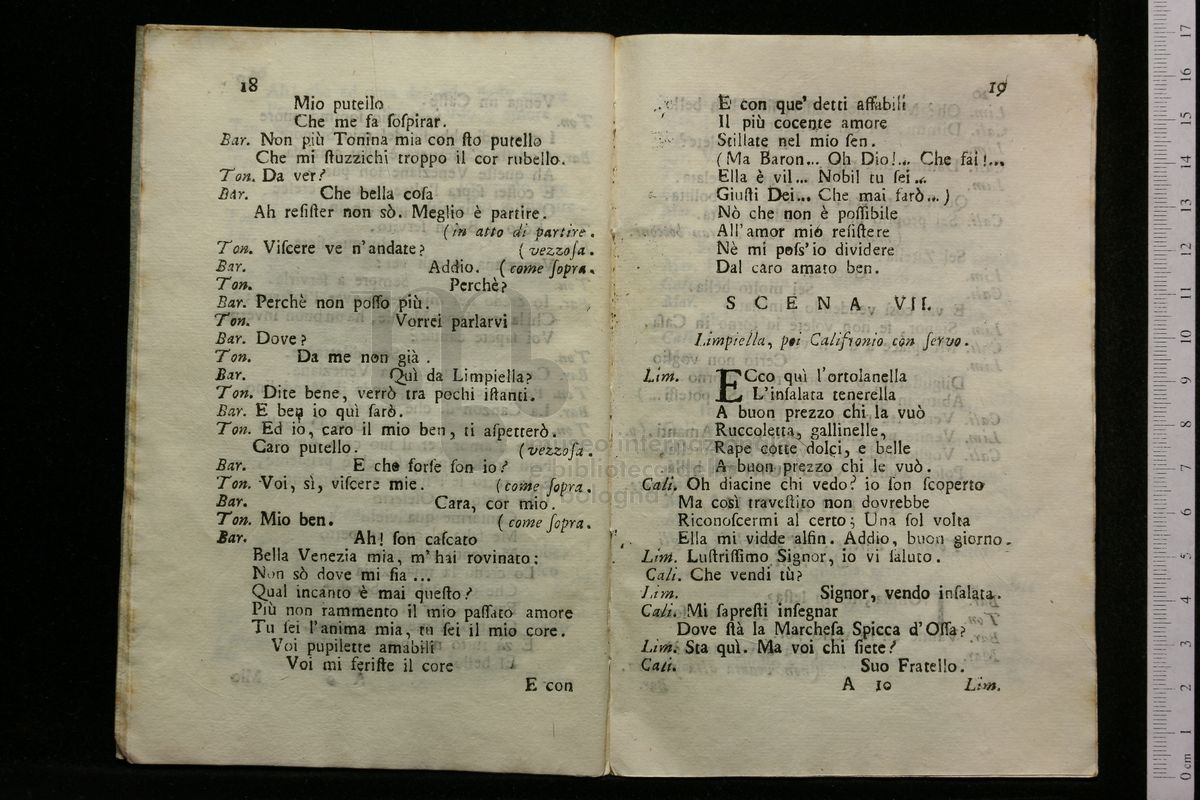 18
Mio putello
Che me fa ſoſpirar.
Bar. Non più Tonina mia con ſto putello
Che mi ſtuzzichi troppo il cor rubello.
Ton. Da ver?
Bar. Che bella coſa
Ah reſiſter non sò. Meglio è partire.
(in atto di partire.
Ton. Viſcere ve n'andate? (vezzoſa.
Bar. Addio. (come ſopra.
Ton. Perchè?
Bar. Perchè non poſſo più.
Ton. Vorrei parlarvi
Bar. Dove?
Ton. Da me non già.
Bar. Quì da Limpiella?
Ton. Dite bene, verrò tra pochi iſtanti.
Bar. E ben io quì ſarò.
Ton. Ed io, caro il mio ben, ti aſpetterò.
Caro putello. (vezzoſa.
Bar. E che forſe ſon io?
Ton. Voi, sì, viſcere mie. (come ſopra.
Bar. Cara, cor mio.
Ton. Mio ben. (come ſopra.
Bar. Ah! ſon caſcato
Bella Venezia mia, m'hai rovinato:
Non sò dove mi ſia ...
Qual incanto è mai queſto?
Più non rammento il mio paſſato amore
Tu ſei l'anima mia, tu ſei il mio core.
Voi pupilette amabili
Voi mi feriſte il core
E con
19
E con que' detti affabili
Il più cocente amore
Stillate nel mio ſen.
(Ma Baron... Oh Dio!... Che fai!...
Ella è vil... Nobil tu ſei...
Giuſti Dei... Che mai farò...)
Nò che non è poſſibile
All'amor mio reſiſtere
Nè mi poſs'io dividere
Dal caro amato ben.
SCENA VII.
Limpiella, poi Califronio con ſervo.
Lim. ECco quì l'ortolanella
L'inſalata tenerella
A buon prezzo chi la vuò
Ruccoletta, gallinelle,
Rape cotte dolci, e belle
A buon prezzo chi le vuò.
Cali. Oh diacine chi vedo? io ſon ſcoperto
Ma così traveſtito non dovrebbe
Riconoſcermi al certo; Una ſol volta
Ella mi vidde alfin. Addio, buon giorno.
Lim. Luſtriſſimo Signor, io vi ſaluto.
Cali. Che vendi tù?
Lim. Signor, vendo inſalata.
Cali. Mi ſapreſti inſegnar
Dove ſtà la Marcheſa Spicca d'Oſſa?
Lim. Sta quì. Ma voi chi ſiete?
Cali. Suo Fratello.
A 10 Lim.
museo internazionale
e biblioteca della musica
bologna
0 cm 1 2 3 4 5 6 7 8 9 10 11 12 13 14 15 16 17